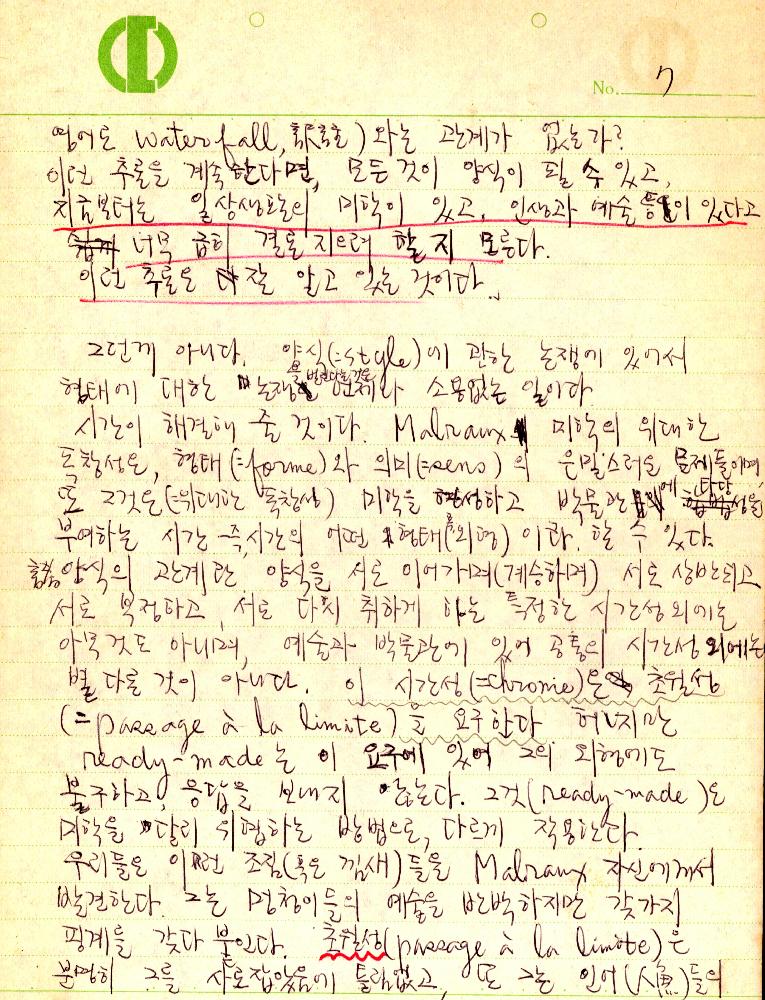 No. 7
영어로 waterfall, ) 와는 관계가 없는가?
이런 추론을 계속한다면, 모든 것이 양식이 될 수 있고,
지금부터는 일상생활의 미학이 있고, 인생과 예술 등이 있다고
너무 급히 결론 지으려 할지 모른다.
이런 추론은 다 잘 알고 있는 것이다.
그런게 아니다. 양식(=style)에 관한 논쟁에 있어서
형태에 대한 논쟁을 언제나 소용없는 일이다.
시간이 해결해 줄 것이다. Malraux 미학의 위대한
독창성은, 형태(=forme)와 의미(=sens)의 은밀스러운 문제들이며,
또 그것은(=위대한 독창성) 미학을 형성하고 박물관에 타당성을
부여하는 시간 - 즉, 시간의 어떤 형태(외형)이라 할 수 있다.
양식의 관계란 양식을 서로 이어가며(계승하며) 서로 상반되고
서로 부정하고, 서로 다시 취하게 하는 특정한 시간성 외에는
아무 것도 아니며, 예술과 박물관에 있어 공통의 시간성 외에는
별 다른 것이 아니다. 이 시간성(=chronie)은 초월성
(=passage à la limite)을 요구한다 허지만
ready-made는 이 요구에 있어 그의 외형에도
불구하고, 응답을 보내지 않는다. 그것(ready-made)은
미학을 달리 위협하는 방법으로, 다르게 작용한다.
우리들은 이런 조짐(혹은 낌새)들을 Malraux 자신에게서
발견한다. 그는 멍청이들의 예술을 반박하지만 갖가지
핑계를 갖다 붙인다. 초월성(passage à la limite)은
분명히 그를 사로잡았음에 틀림없고, 또 그는 인어(人魚)들의